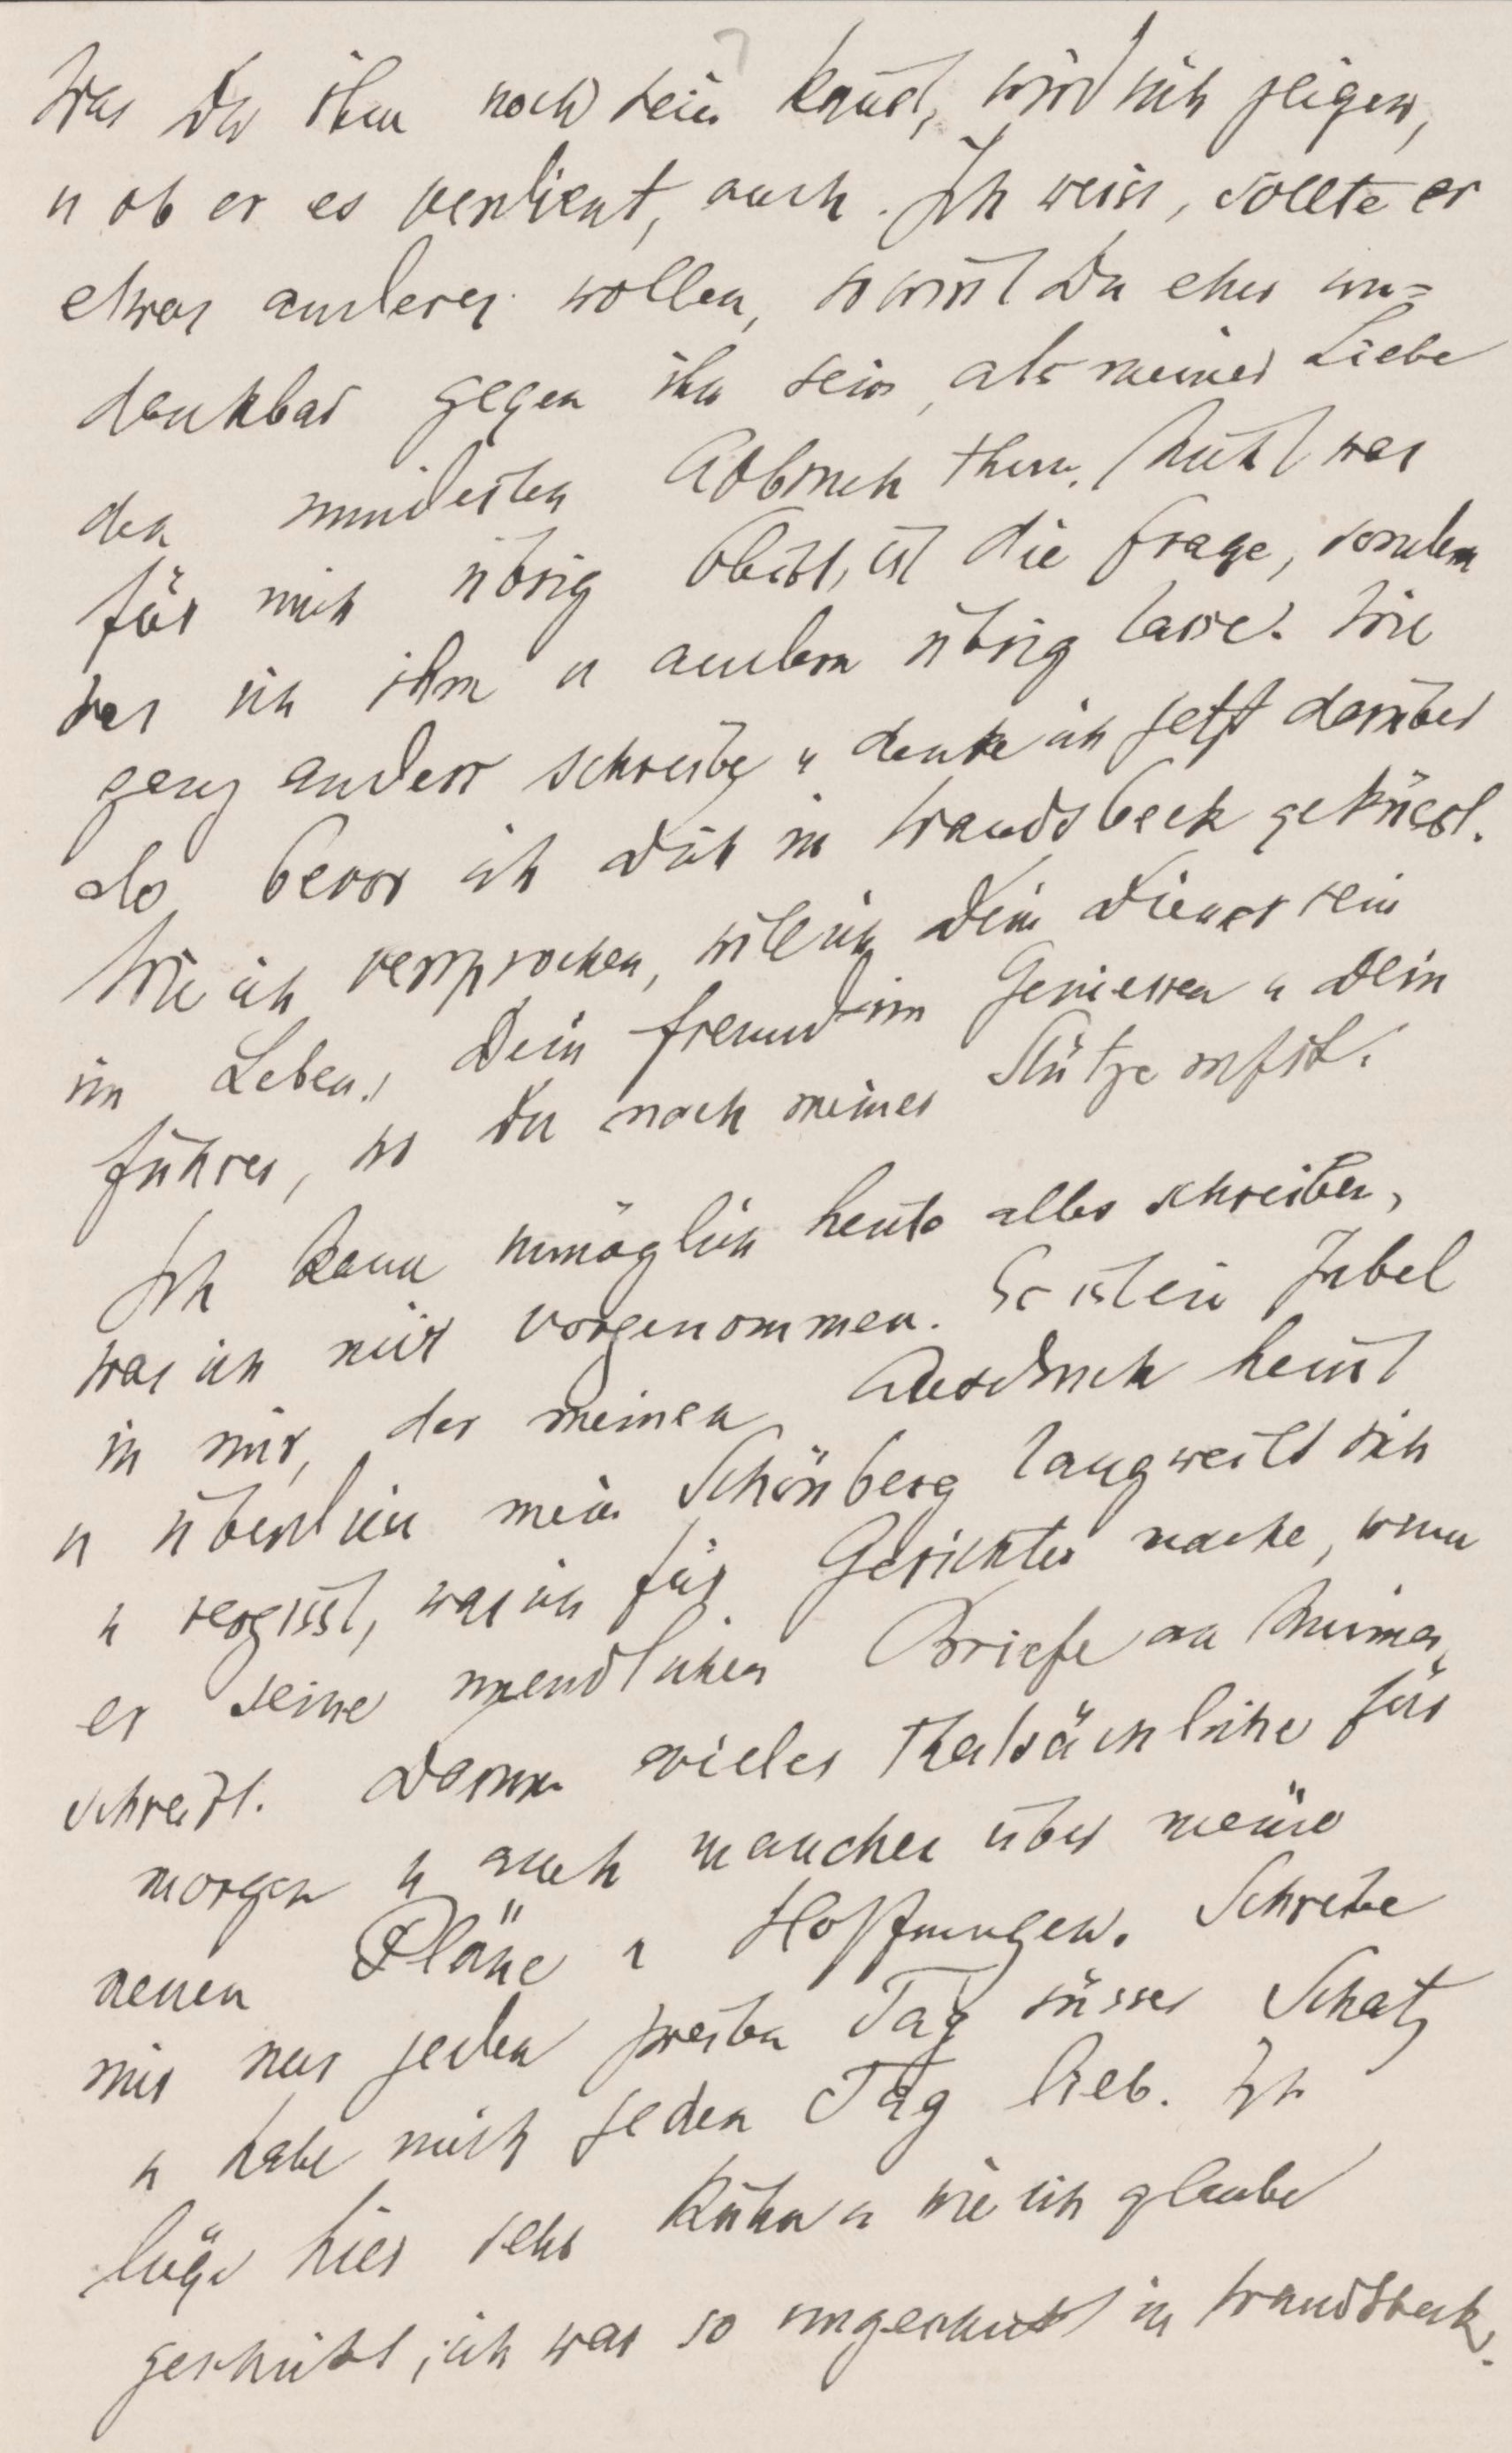 Was Du ihm noch sein kannst, wird sich zeigen,
u ob er es verdient, auch. Ich weiss, sollte er
etwas anderes wollen, so wirst Du eher un=
dankbar gegen ihn sein, als meiner Liebe
den mindesten Abbruch thun. Nicht was
für mich übrig bleibt, ist die Frage, sondern
was ich ihm u andern übrig lasse. Wie
ganz anders schreibe u denke ich jetzt darüber
als bevor ich Dich in Wandsbeck geküsst.
Wie ich versprochen, will ich Dein Diener sein
im Leben, Dein Freund im Geniessen u Dein
Führer, wo Du nach meiner Stütze rufst.
Ich kann unmöglich heute alles schreiben,
was ich mir vorgenommen. Es ist ein Jubel
in mir, der meinen Ausdruck hemmt
u überdies mein Schönberg langweilt sich
u vergisst, was ich für Gesichter mache, wenn
er seine unendlichen Briefe an Minna
schreibt. Darum vieles Thatsächliche für
morgen u auch manches über meine
neuen Pläne u Hoffnungen. Schreibe
mir nur jeden zweiten Tag süsser Schatz
u habe mich jeden Tag lieb. Ich
lüge hier sehr kühn u wie ich glaube
geschickt, ich war so ungeschickt in Wandsbeck.